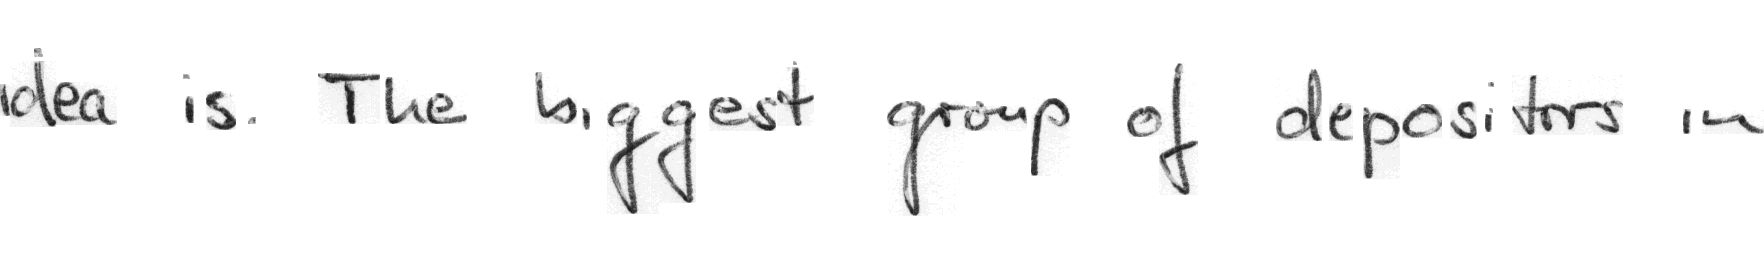 idea is. The biggest group of depositors in